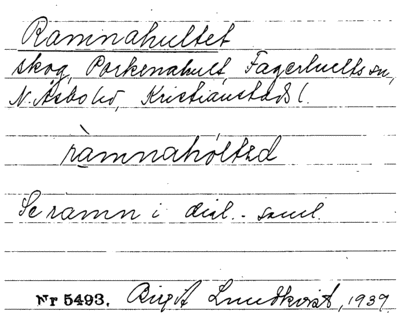 Ramnahultet
skog, Porkenahult, Fagerhults sn,
N. Åsbo hd, Kristianstads l.
ràmnahóltəd
Se ramn i dial.- saml.
Nr 5493. Birgit Lundkvist, 1939